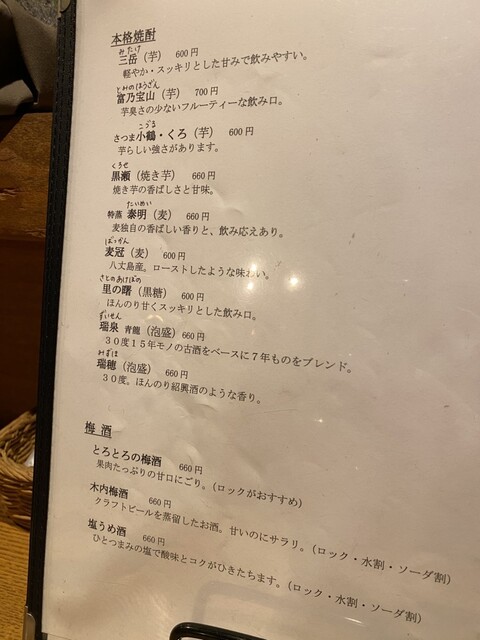 本格焼酎
みたけ
三岳（芋） 600円
軽やか・スッキリとした甘みで飲みやすい。
とみのほうざん
富乃宝山（芋） 700円
芋臭さの少ないフルーティーな飲み口。
こづる
さつま小鶴・くろ（芋） 600円
芋らしい強さがあります。
くろせ
黒瀬（焼き芋） 660円
焼き芋の香ばしさと甘味。
たいめい
特蒸 泰明（麦） 660円
麦独自の香ばしい香りと、飲み応えあり。
ばっかん
麦冠（麦） 600円
八丈島産。ローストしたような味わい。
さとのあけぼの
里の曙（黒糖） 600円
ほんのり甘くスッキリとした飲み口。
ずいせん
瑞泉 青龍（泡盛）660円
３０度１５年モノの古酒をベースに７年ものをブレンド。
みずほ
瑞穂（泡盛） 660円
３０度。ほんのり紹興酒のような香り。
梅 酒
とろとろの梅酒 660円
果肉たっぷりの甘口にごり。（ロックがおすすめ）
木内梅酒 660円
クラフトビールを蒸留したお酒。甘いのにサラリ。（ロック・水割・ソーダ割）
塩うめ酒 660円
ひとつまみの塩で酸味とコクがひきたちます。（ロック・水割・ソーダ割）